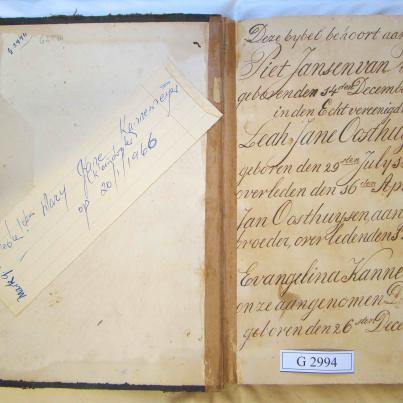 G 2994
Mary Jane Kannemeyer
op 20/1/1966
Deze bybel behoort aan
Piet Jansen van
geboren den 14den Decemb
in den Echt vereenigd
Leah Jane Oosthuy
geboren den 29sten July
overleden den 16den Ap
Jan Oosthuysen aan
broeder, overleden den
Evangelina Kanne
onze aangenomen D
geboren den 26sten Dece
G 2994